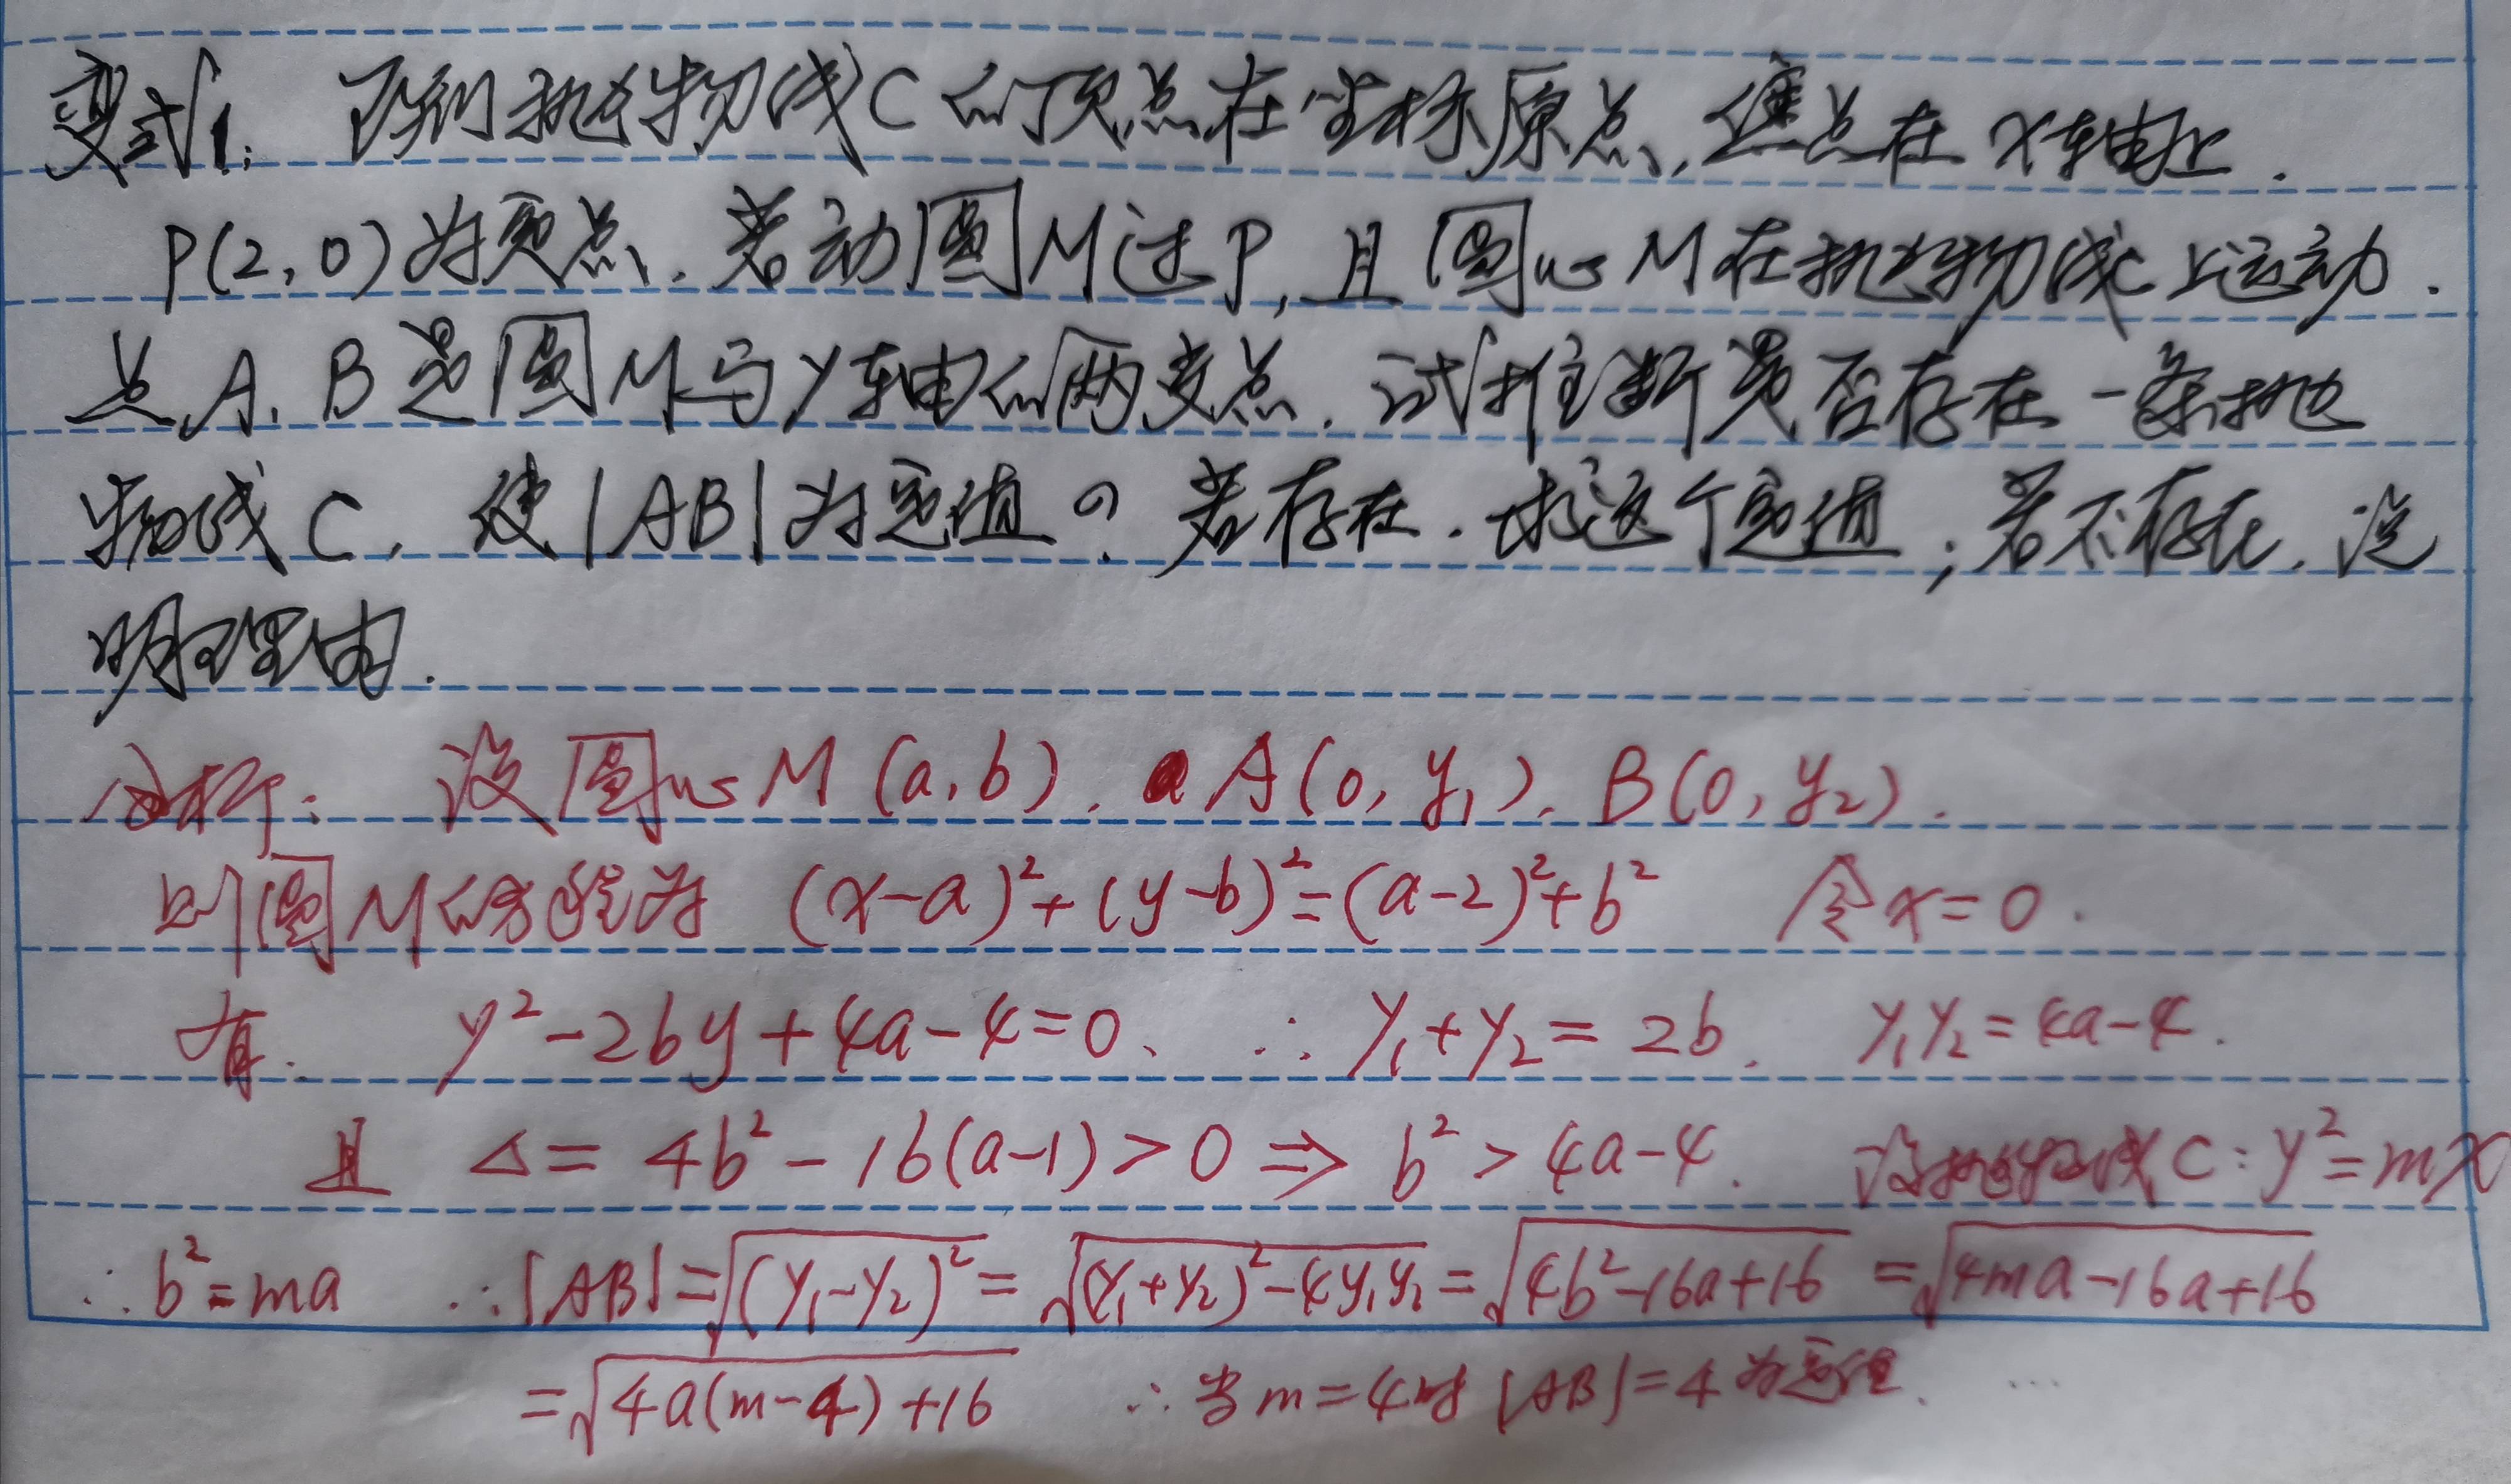 变式1: 已知抛物线C的顶点在坐标原点,焦点在x轴上.
P(2,0)为定点.若动圆M过P,且圆心M在抛物线C上运动.
点A、B是圆M与y轴的两交点.试推断是否存在一条抛
物线C,使|AB|为定值?若存在.求这个定值;若不存在,说
明理由.
分析: 设圆心M(a,b). A(0,y₁)、B(0,y₂).
则圆M的方程为 (x-a)²+(y-b)²=(a-2)²+b² 令x=0.
有. y²-2by+4a-4=0、 ∴ y₁+y₂=2b. y₁y₂=4a-4.
且 Δ= 4b²-16(a-1)>0 ⇒ b²>4a-4. 设抛物线C:y²=mx
∴ b²=ma ∴|AB|=√(y₁-y₂)²=√(y₁+y₂)²-4y₁y₂=√4b²-16a+16=√4ma-16a+16
=√4a(m-4)+16 ∴当m=4时|AB|=4为定值. ...